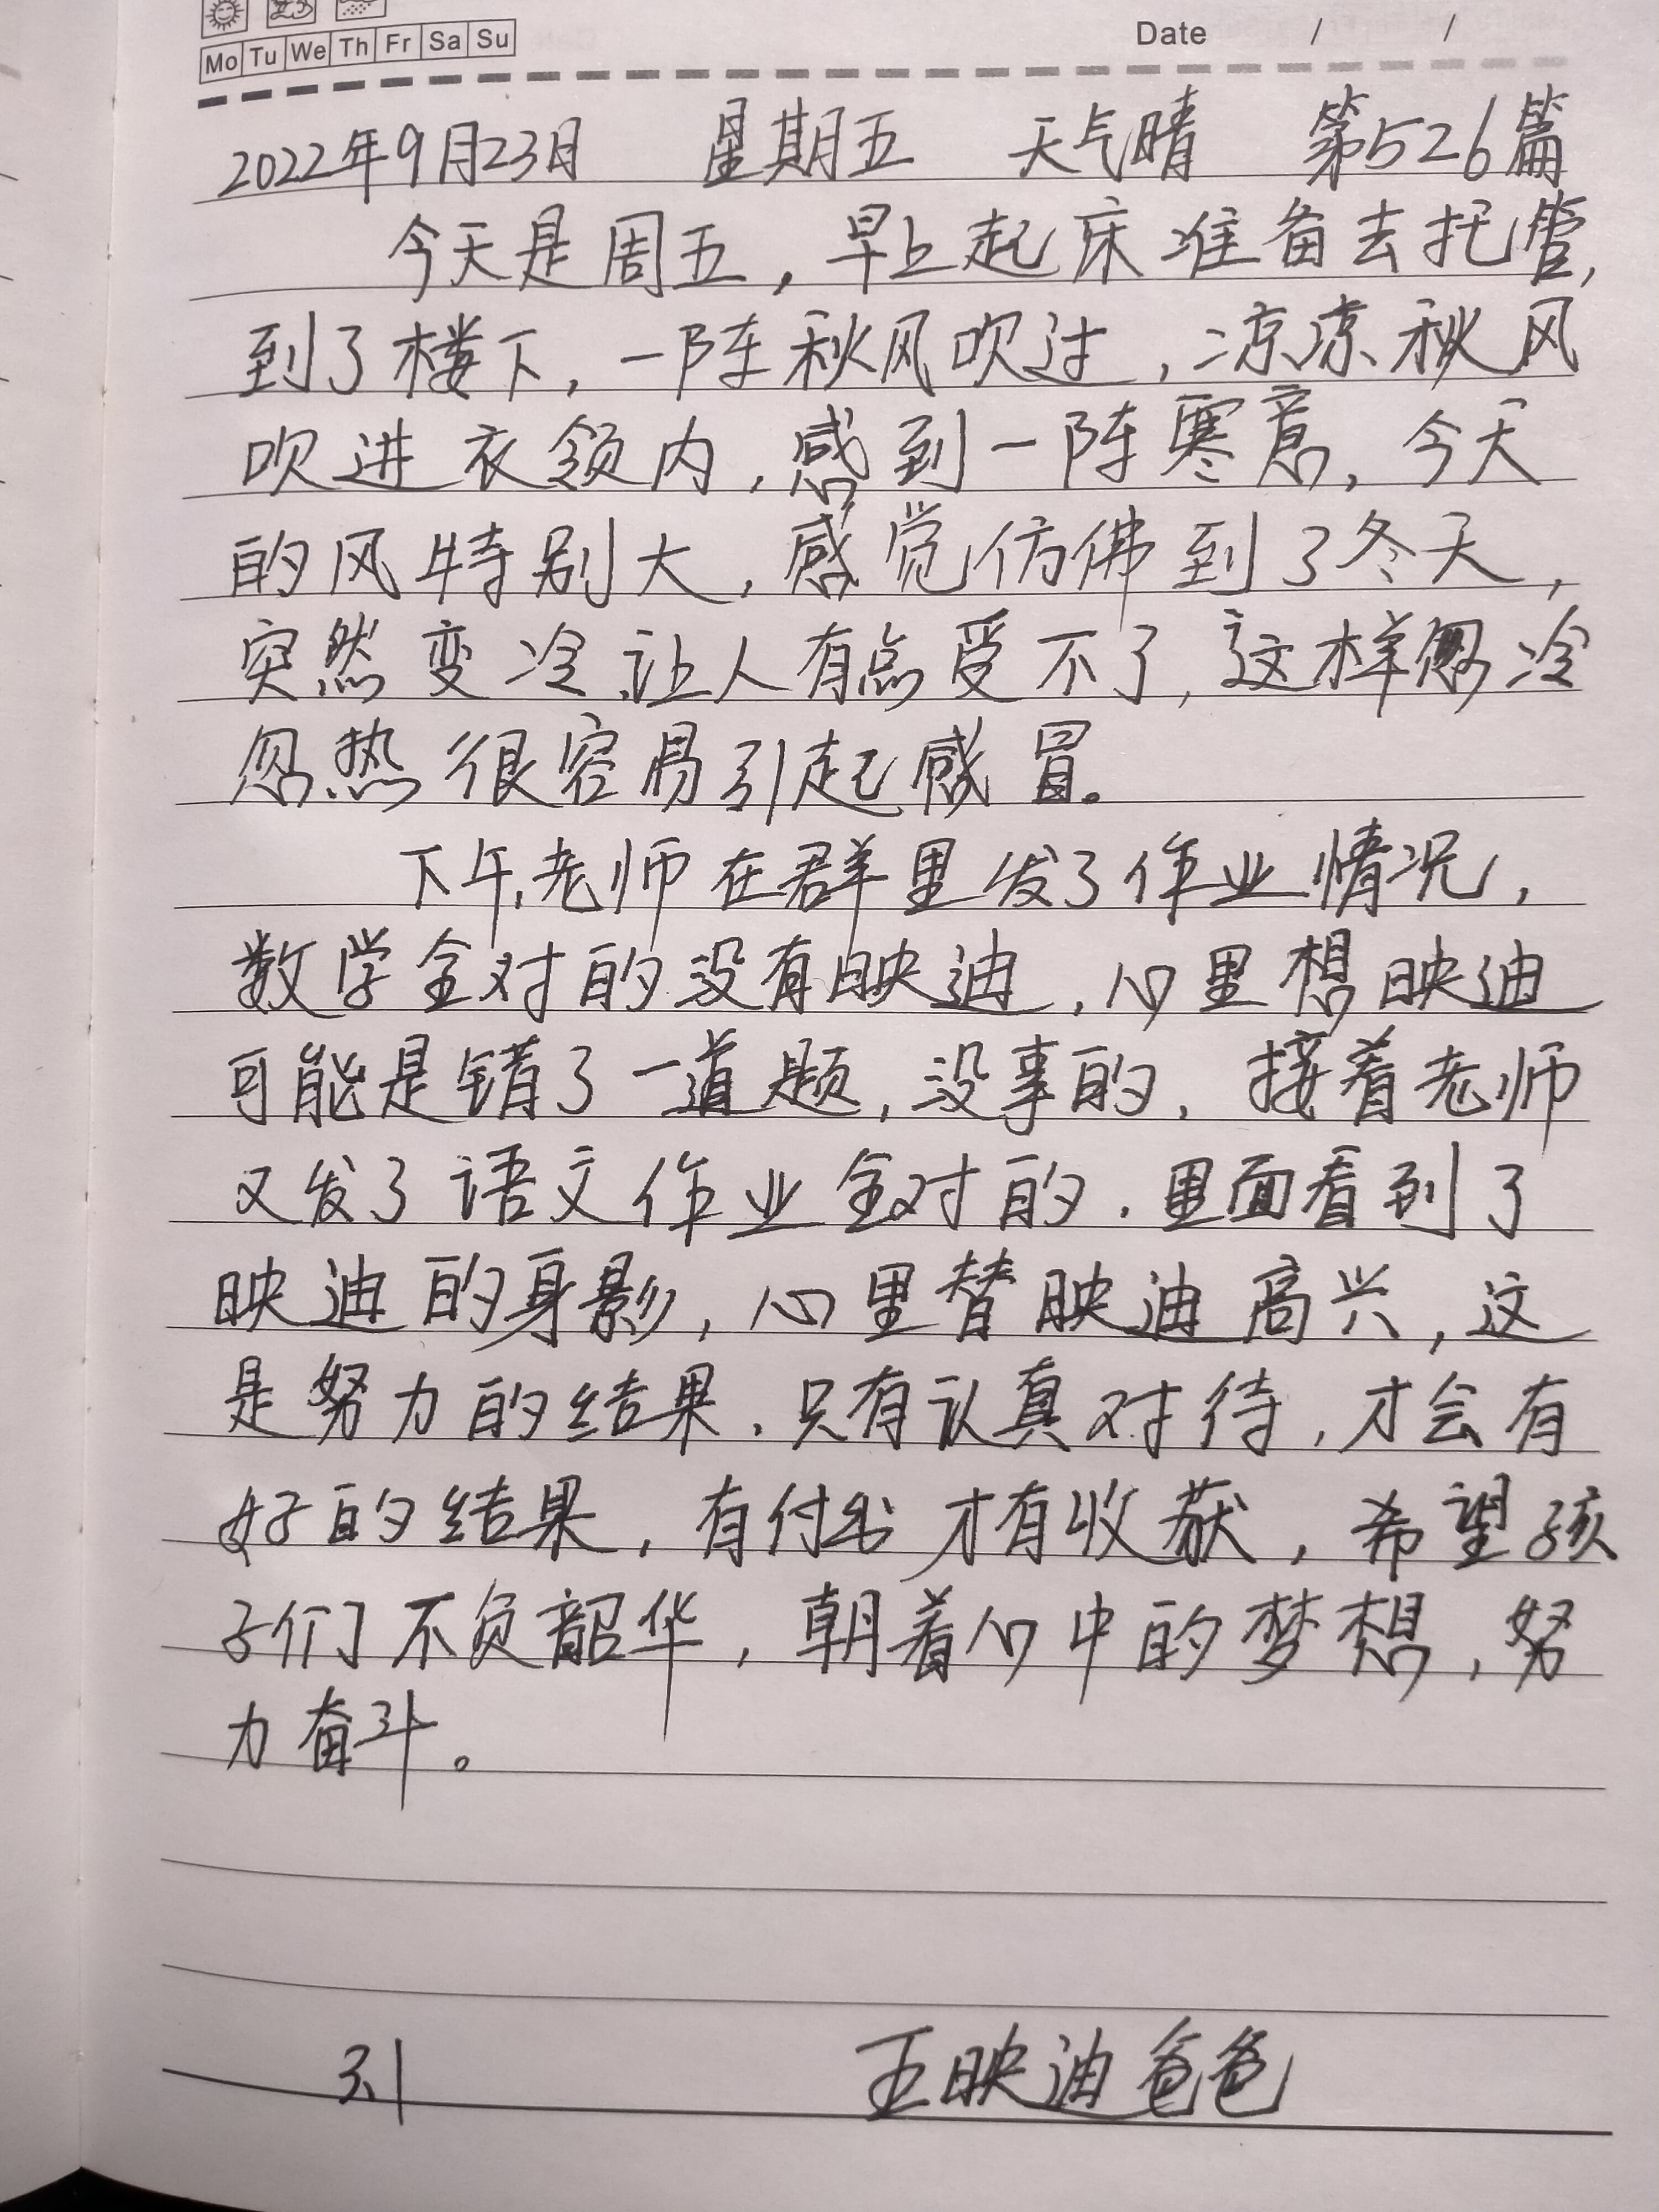 Mo Tu We Th Fr Sa Su
Date / /
2022年9月23日 星期五 天气晴 第526篇
今天是周五，早上起床准备去托管，
到了楼下，一阵秋风吹过，凉凉秋风
吹进衣领内，感到一阵寒意，今天
的风特别大，感觉仿佛到了冬天，
突然变冷，让人有点受不了，这样忽冷
忽热很容易引起感冒。
下午，老师在群里发了作业情况，
数学全对的没有映迪，心里想映迪
可能是错了一道题，没事的，接着老师
又发了语文作业全对的，里面看到了
映迪的身影，心里替映迪高兴，这
是努力的结果，只有认真对待，才会有
好的结果，有付出才有收获，希望孩
子们不负韶华，朝着心中的梦想，努
力奋斗。
3.1 王映迪爸爸